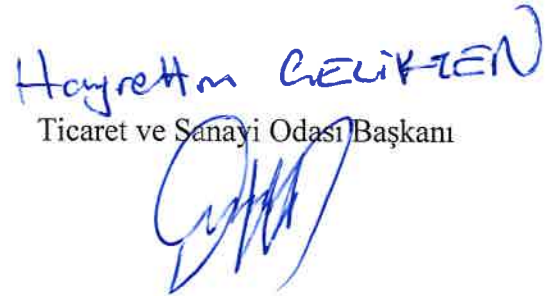 Hayrettin ÇELİKTEN
Ticaret ve Sanayi Odası Başkanı